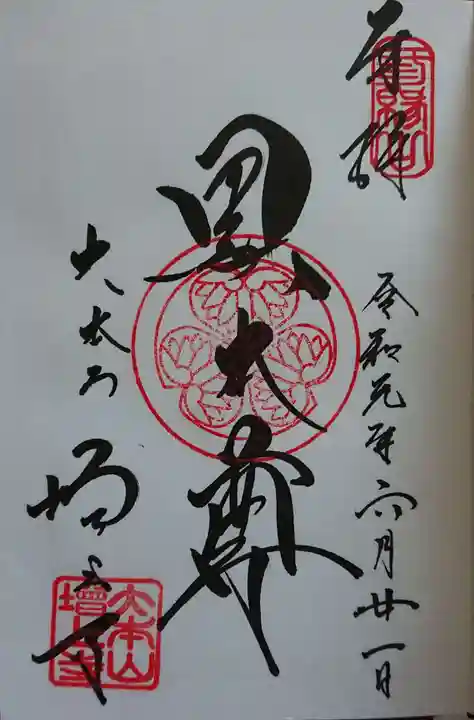 奉拝
令和元年六月廿一日
黒本尊
大本山
増上寺
大本山
增上寺